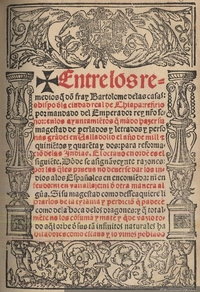 ✠ Entre los re-
medios q̃ dõ fray Bartolome delas casas:
obispo dela ciudad real de Chiapa: refirio
por mandado del Emperador rey nr̃o se-
ñor: enlos ayuntamiẽtos q̃ mãdo hazer su
magestad de perlados y letrados y perso
nas grãdes en Ualladolid el año de mill ⁊
quiniẽtos y quarẽta y dos: para reforma-
ciõ delas Indias. El octauo en ordẽ es el
siguiẽte. Dõde se asignã veynte razones:
por las q̃les prueua no deuerse dar los in-
dios alos Españoles en encomiẽda: ni en
feudo: ni en vassallaje: ni d̃ otra manera al
gũa. Si su magestad como dessea quiere li
brarlos de la tyrania y perdiciõ q̃ padecẽ
como dela boca delos dragones: y q̃ total
mẽte no los cõsuman y matẽ y q̃de vazio to
do aq̃l orbe d̃ sus tã infinitos naturales ha
bitadores como estaua y lo vimos poblado